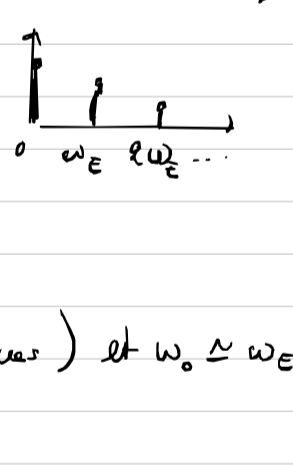 0 ω_E 2ω_E ...
ues ) et ω₀ ≃ ω_E